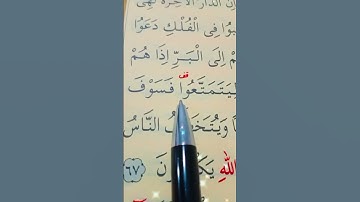 إِنَّ الدَّارَ الْاٰخِرَةَ لَهِىَ
بُوا فِى الْفُلْكِ دَعَوُا
مْ اِلَى الْبَرِّ اِذَا هُمْ
يَتَمَتَّعُوا قف فَسَوْفَ
ا وَيُتَخَ النَّاسُ
اللّٰهِ يَكْ نَ ٦٧